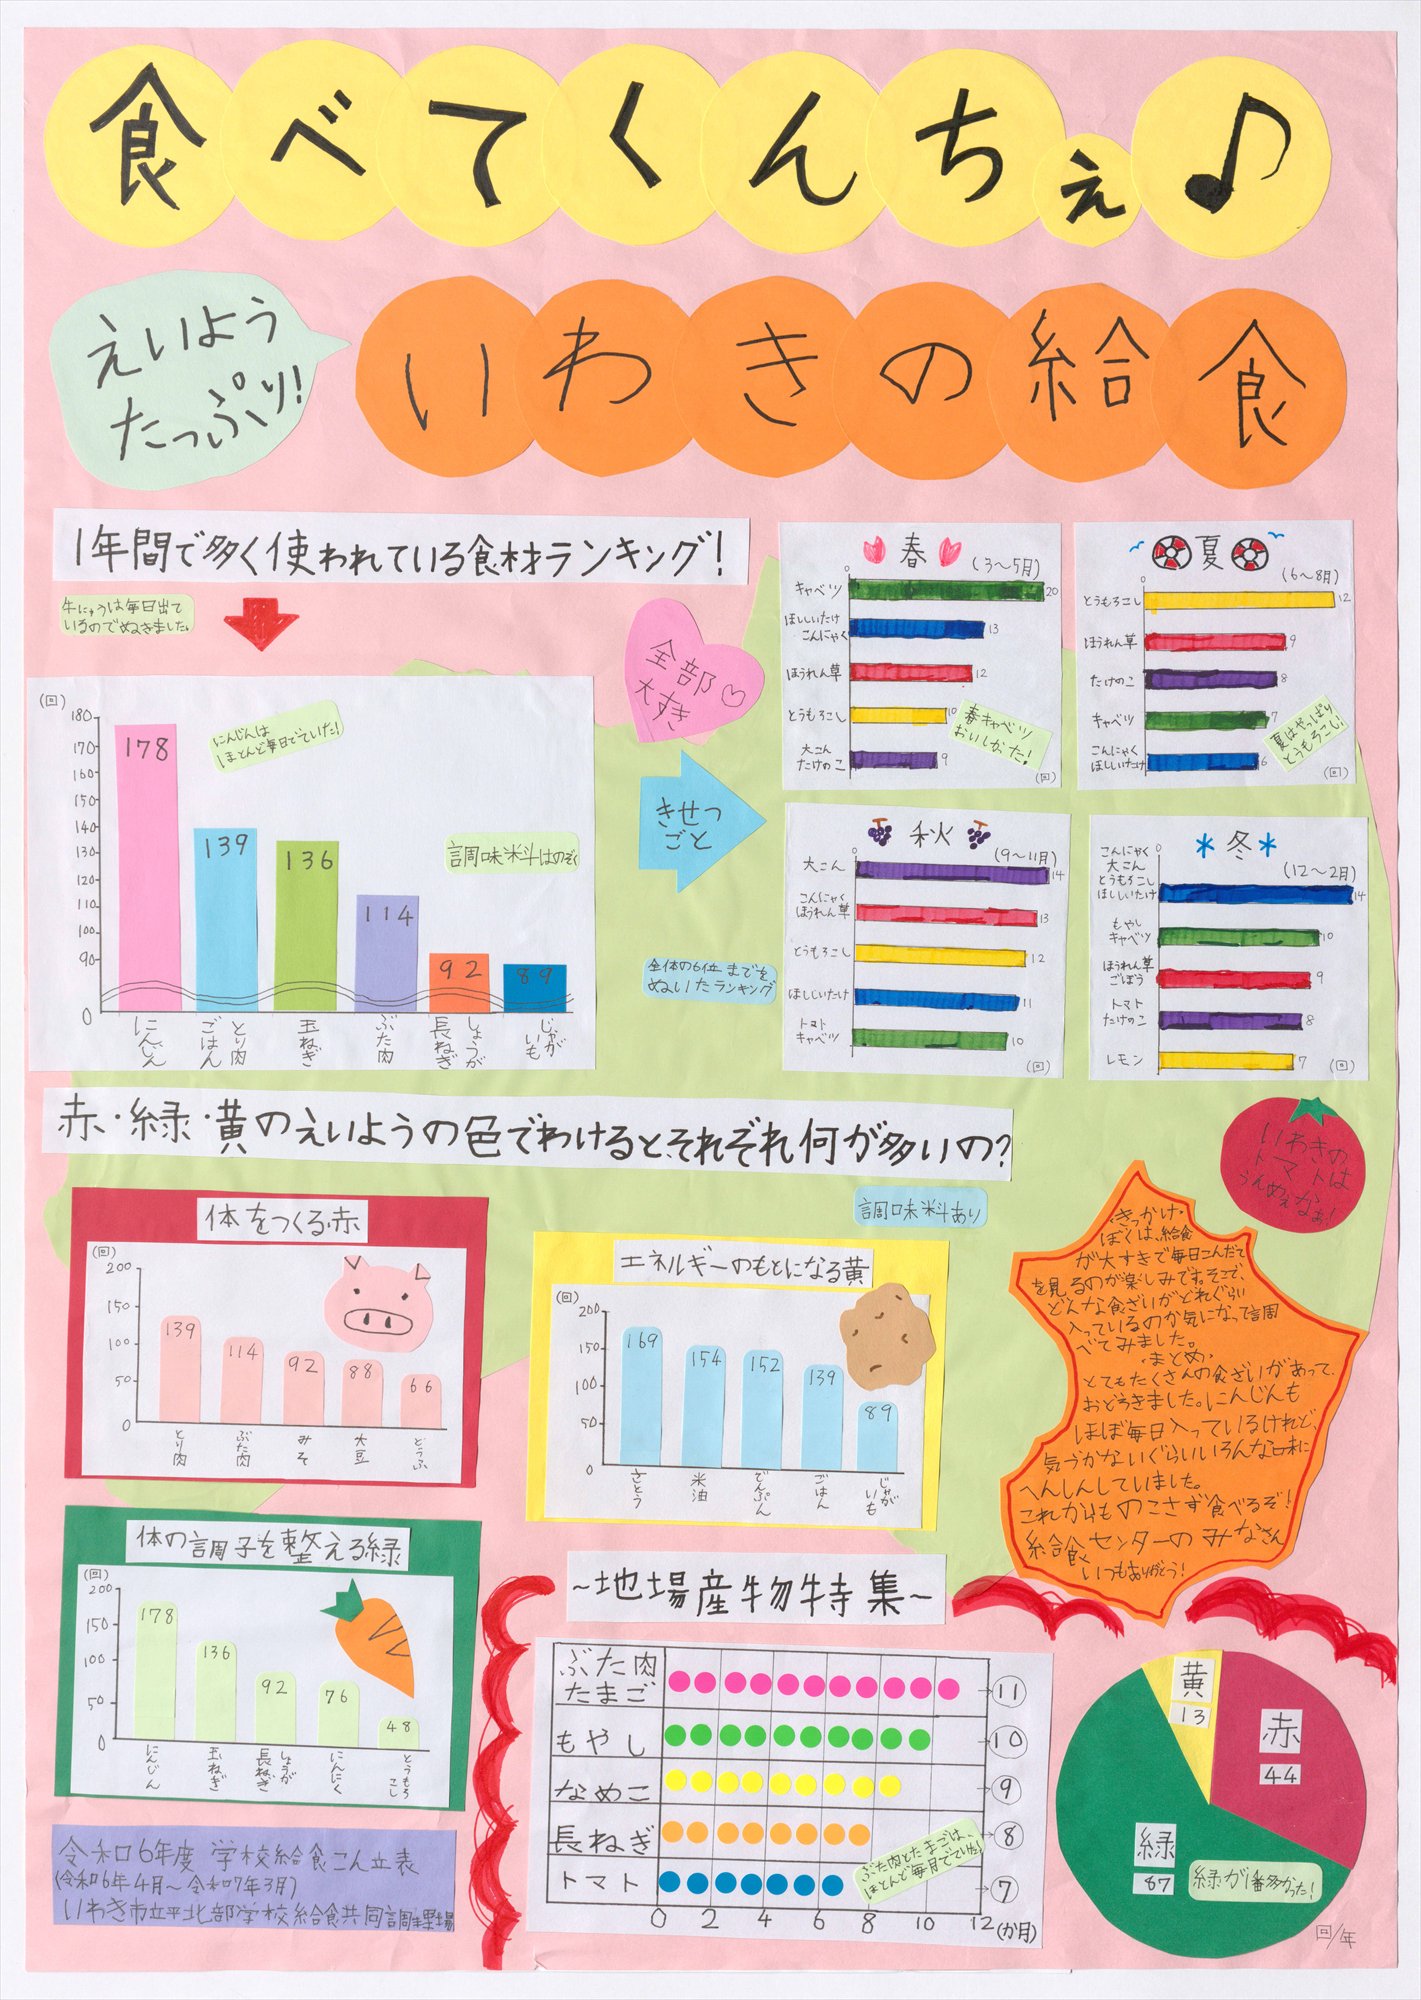 食べてくんちぇ♪
えいよう
たっぷり!
いわきの給食
1年間で多く使われている食材ランキング!
牛にゅうは毎日出て
いるのでぬきました。
(回)
180
170
160
150
140
130
120
110
100
90
0
178
139
136
114
92
89
にんじんは
ほとんど毎日でていた!
調味料はのぞく
にんじん
ごはん とり肉
玉ねぎ
ぶた肉
長ねぎ しょうが
じゃがいも
全部♡
大すき
きせつ
ごと
全体の6位までを
ぬいたランキング
春
(3~5月)
0
キャベツ 20
ほししいたけ
こんにゃく 13
ほうれん草 12
とうもろこし 10
大こん
たけのこ 9
春キャベツ
おいしかった!
(回)
夏
(6~8月)
0
とうもろこし 12
ほうれん草 9
たけのこ 8
キャベツ 7
こんにゃく
ほししいたけ 6
夏はやっぱり
とうもろこし!
(回)
秋
(9~11月)
0
大こん 14
こんにゃく
ほうれん草 13
とうもろこし 12
ほししいたけ 11
トマト
キャベツ 10
(回)
冬
(12~2月)
0
こんにゃく
大こん
とうもろこし
ほししいたけ 14
もやし
キャベツ 10
ほうれん草
ごぼう 9
トマト
たけのこ 8
レモン 7
(回)
赤・緑・黄のえいようの色でわけるとそれぞれ何が多いの?
調味料あり
体をつくる赤
(回)
200
150
100
50
0
139
114
92
88
66
とり肉
ぶた肉
みそ
大豆
とうふ
エネルギーのもとになる黄
(回)
200
150
100
50
0
169
154
152
139
89
さとう
米油
でんぷん
ごはん
じゃがいも
体の調子を整える緑
(回)
200
150
100
50
0
178
136
92
76
48
にんじん
玉ねぎ
長ねぎ しょうが
にんにく
とうもろこし
いわきの
トマトは
うんめぇなぁ!
・きっかけ・
ぼくは、給食
が大すきで毎日こんだて
を見るのが楽しみです。そこで、
どんな食ざいがどれぐらい
入っているのか気になって調
べてみました。
・まとめ・
とてもたくさんの食ざいがあって、
おどろきました。にんじんも
ほぼ毎日入っているけれど、
気づかないぐらいいろんな味に
へんしんしていました。
これからものこさず食べるぞ!
給食センターのみなさん
いつもありがとう!
~地場産物特集~
ぶた肉
たまご ⑪
もやし ⑩
なめこ ⑨
長ねぎ ⑧
トマト ⑦
0 2 4 6 8 10 12 (か月)
ぶた肉とたまごは、
ほとんど毎月でてい
黄
13
赤
44
緑
87
緑が1番多かった!
回/年
令和6年度 学校給食こん立表
(令和6年4月~令和7年3月)
いわき市立平北部学校給食共同調理場